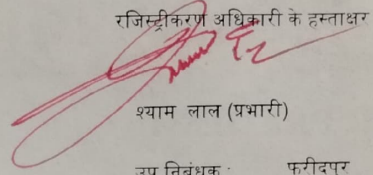 रजिस्ट्रीकरण अधिकारी के हस्ताक्षर
श्याम लाल (प्रभारी)
उप निबंधक : फरीदपुर